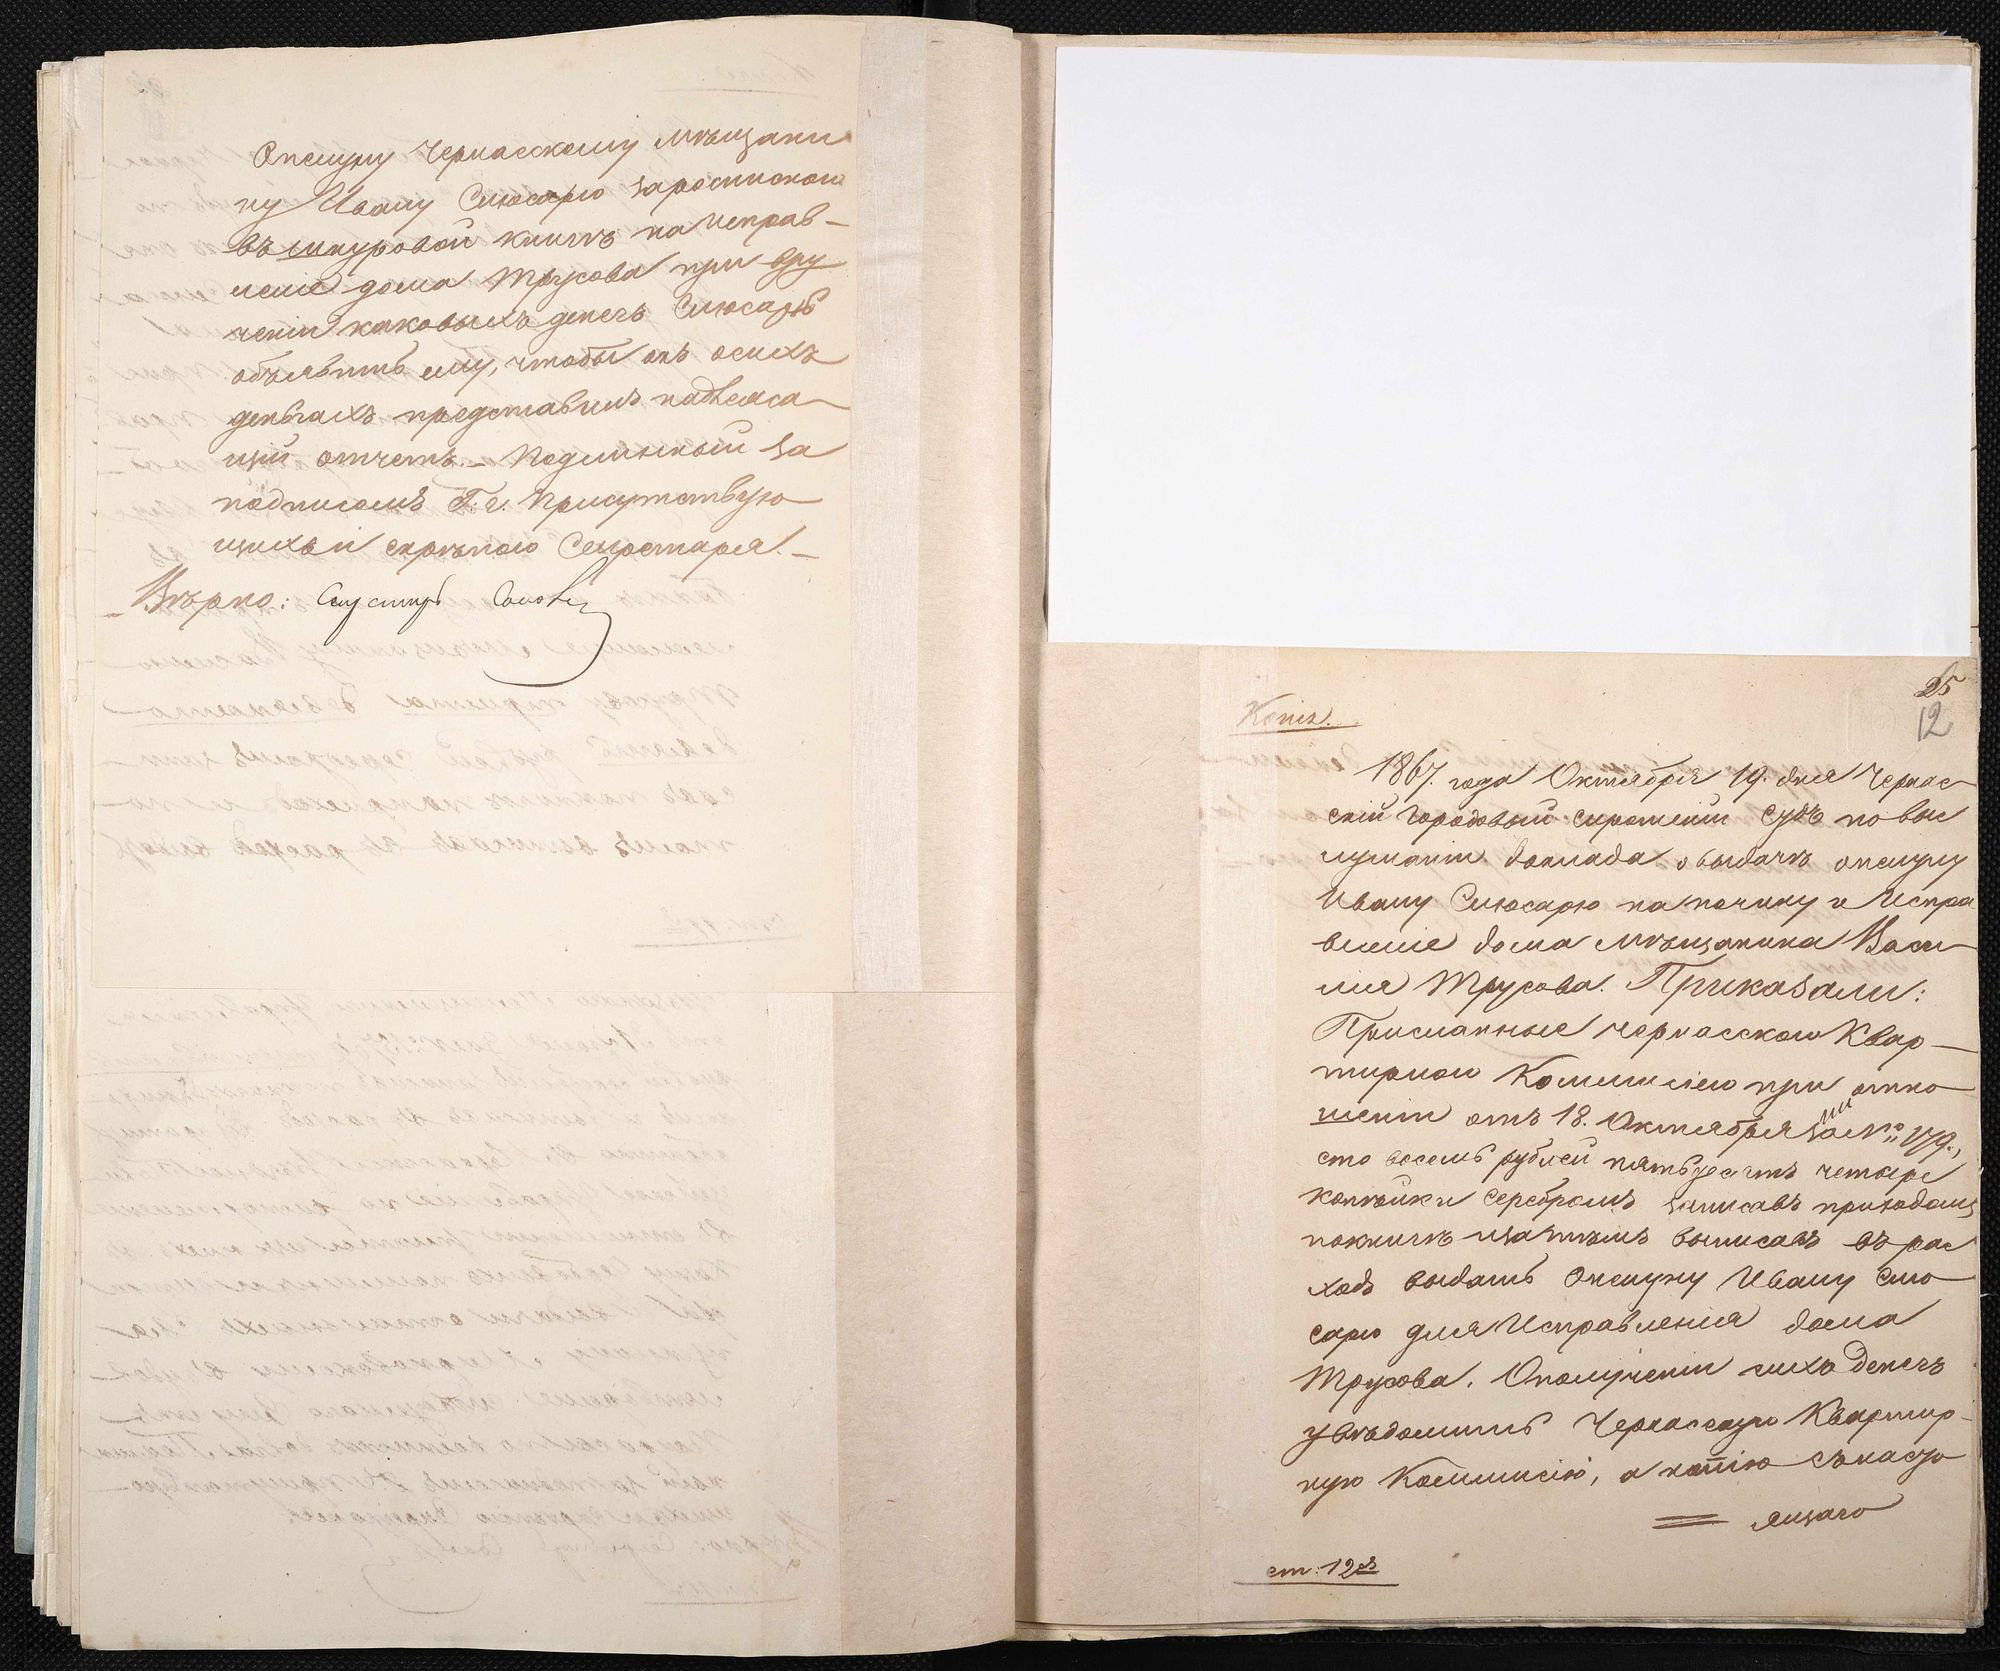 Опекуну Черкасскому мѣщани
ну Ивану Слюсарю зароспискою
въ шнуровой книгѣ на исправ-
ление дома Трусова при вру
ченіи каковыхъ денегъ Слюсарю
объявить ему, чтобы онъ осихъ
деньгахъ представилъ надлежа-
щій отчетъ. – Подлинный за
подписомъ Г. г. Присутствую
щихъ и скрѣпою Секретаря. –
Вѣрно:
25
12
Копія.
1867. года Октября 19. дня Черкас-
скій Городовый сиротскій Судъ по выс
лушаніи доклада о выдачѣ опекуну
Ивану Слюсарю на починку и Испра
вление дома мѣщанина Васи-
лия Трусова. Приказали:
Присланные черкасскою Квар-
тирною Коммисіею при отно-
шеніи отъ 18. Октября за № 179.,
сто восемь рублей пятьдесятъ четыре
копѣйки серебромъ записавъ приходомъ
покнигѣ изатѣмъ выписавъ въ рас
ходъ выдать опекуну Ивану Слю-
сарю для Исправления дома
Трусова. Ополученіи сихъ денегъ
увѣдомить Черкасскую Квартир-
ную Коммисію, а копію съ насто
ящаго
ст: 123